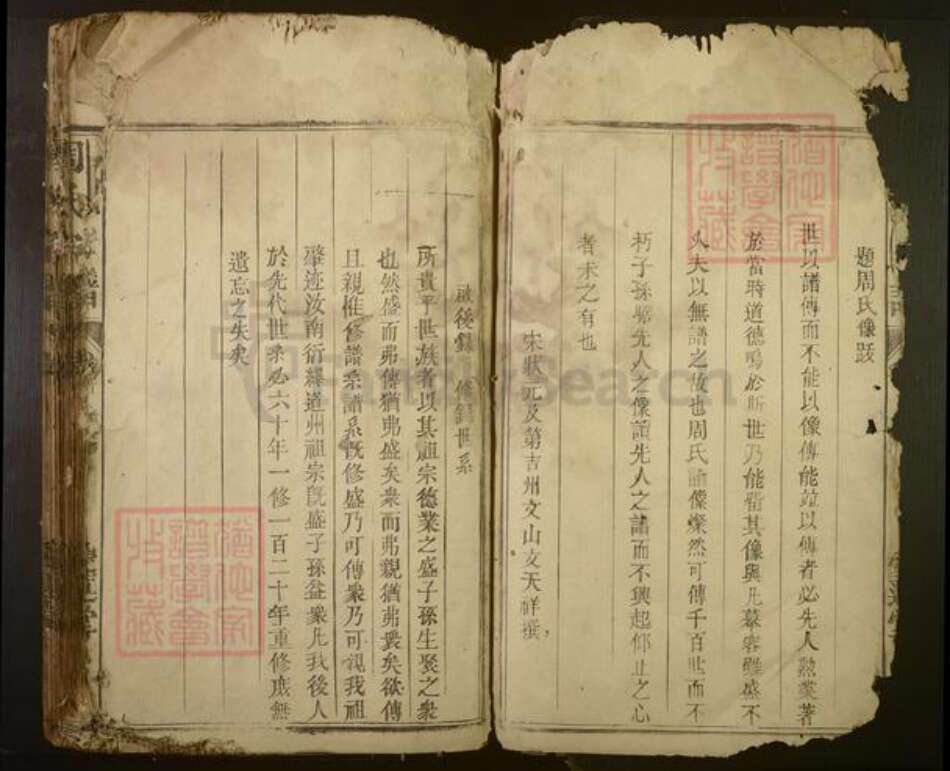 題周氏像跋
世以譜傳而不能以像傳能並以傳者必先人勲業著
於當時道德鳴於斯世乃能留其像與凡慕容雖盛不
久夫以無譜之故也周氏譜像燦然可傳千百世而不
朽子孫夢先人之像讀先人之譜而不興起仰止之心
者未之有也
宋狀元及第吉州文山文天祥撰
啟後錄 修錄世系
所貴乎世族者以其祖宗德業之盛子孫生聚之衆
也然盛而弗傳猶弗盛矣衆而弗親猶弗衆矣欲傳
且親惟修譜系譜系旣修盛乃可傳衆乃可親我祖
肇迹汝南衍繹道州祖宗旣盛子孫益衆凡我後人
於先代世系必六十年一修一百二十年重修庶無
遺忘之失矣
周氏
譜學會
收藏
譜學會
收藏
FamilySearch